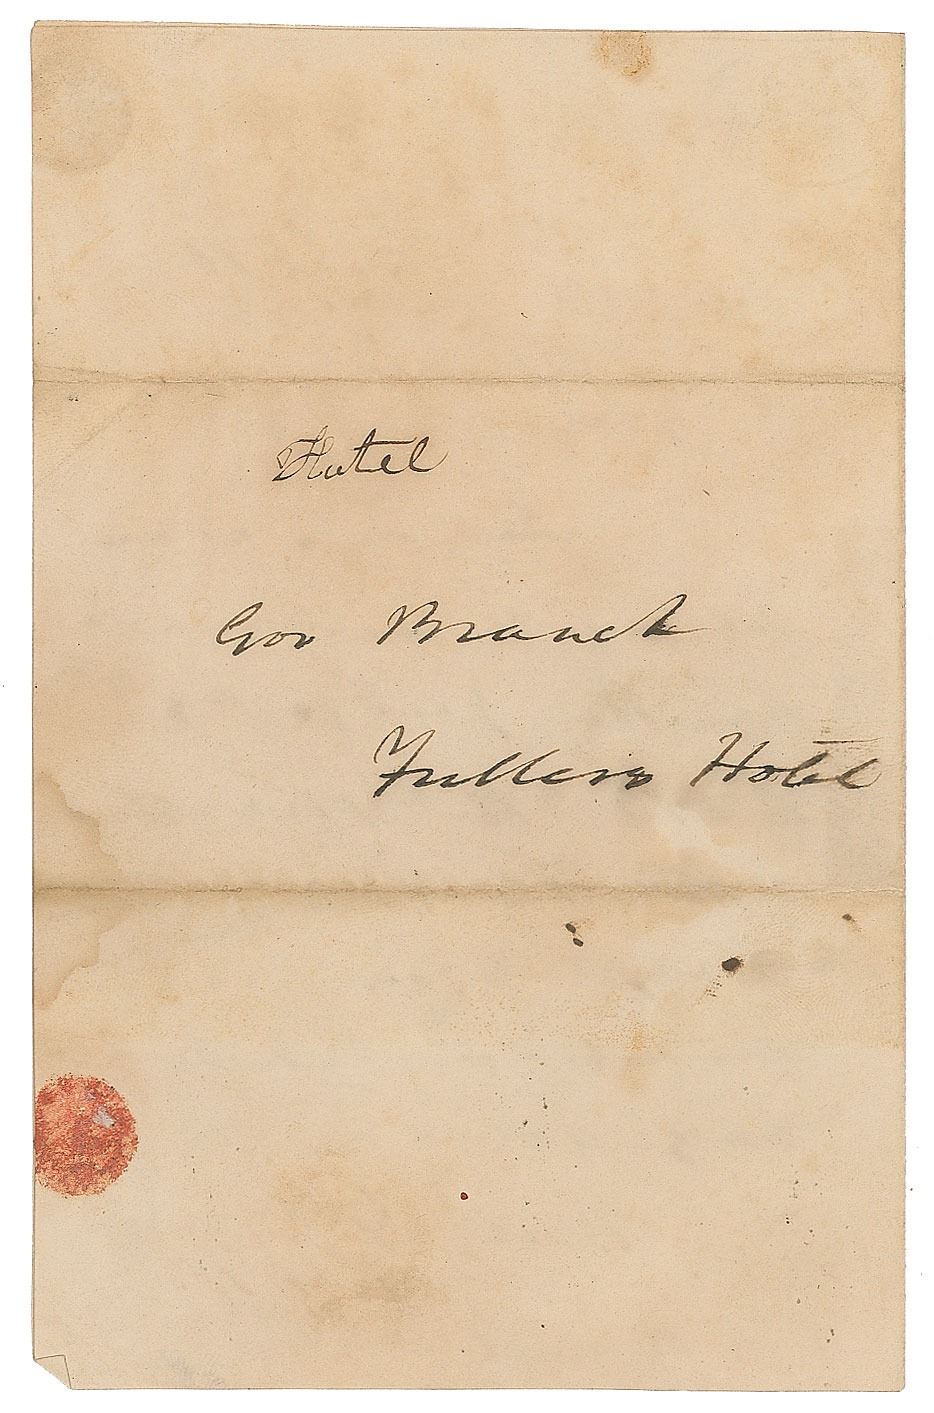 Hotel
Gov Branch
Fullers Hotel